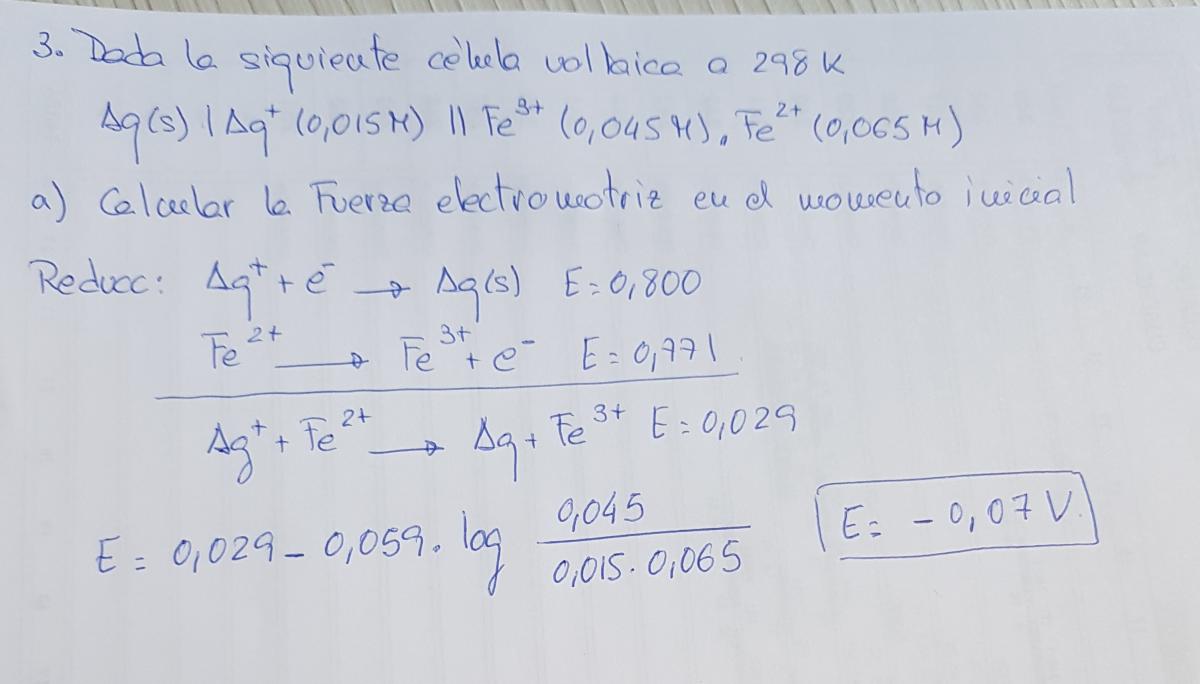 3. Dada la siguiente célula voltaica a 298 K
Ag(s) | Ag⁺ (0,015M) || Fe³⁺ (0,045M), Fe²⁺ (0,065M)
a) Calcular la Fuerza electromotriz en el momento inicial
Reducc: Ag⁺ + e⁻ → Ag(s) E = 0,800
Fe²⁺ → Fe³⁺ + e⁻ E = 0,771
Ag⁺ + Fe²⁺ → Ag + Fe³⁺ E = 0,029
E = 0,029 - 0,059 · log 0,045 / 0,015 · 0,065
E = - 0,07 V.